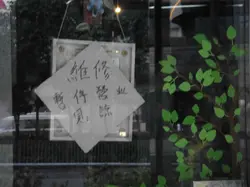 維修
暫停營業
見諒